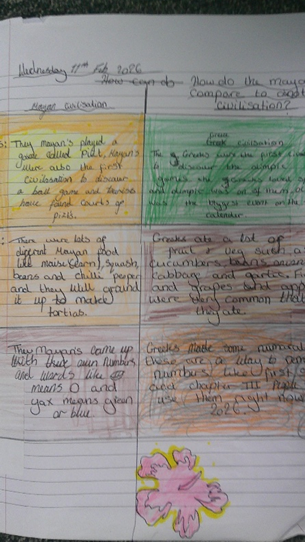 Wednesday 11th Feb 2026
How can do How do the Maya
Compare to
Civilisation?
Mayan Civilisation
They Mayan's played a
game called Pitz, Mayan's
were also the first
Civilisation to discover
a ball game and
have found courts of
pitz.
Greek Civilisation
The Greeks were the first
to discover the
games the
and
was the biggest event on the
calendar
There were lots of
different Mayan food
like maise (corn), Squash,
beans and chilli peper
and they will ground
it up to make
tortias.
Greeks ate a lot of
fruit + veg such a
cucumbers, beans, onion
Cabbag and garlic. Fi
and grapes and app
were very common tha
they ate.
They Mayan's came up
with their own numbers
and words like
means 0 and
yax means green
or blue.
Greeks made some numeral
these are a way to
numbers, like first, s
and chapter III People
use them right now
2026.